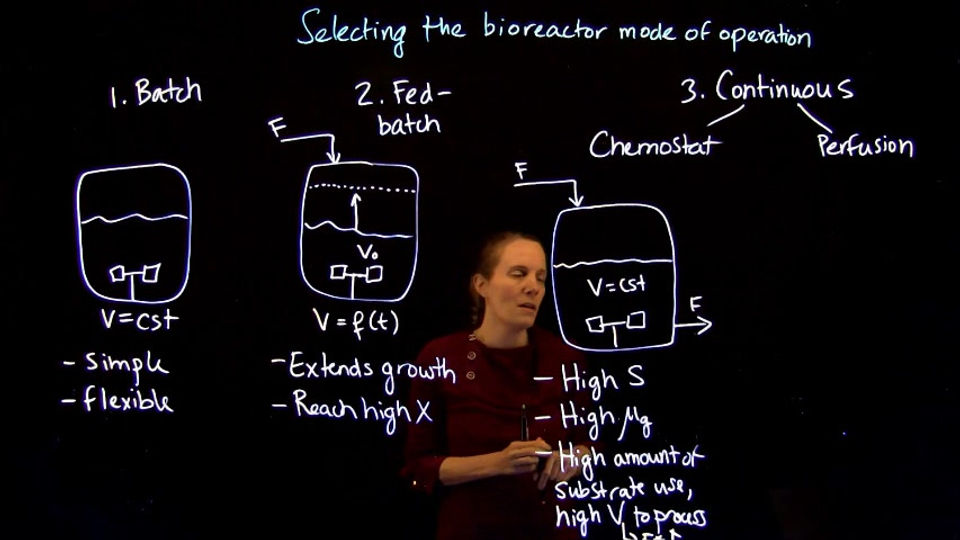 Selecting the bioreactor mode of operation
1. Batch
2. Fed-
batch
3. Continuous
Chemostat
Perfusion
F
F
V₀
V=cst
F
V=cst
V=f(t)
- Simple
- flexible
- Extends growth
- Reach high X
- High S
- High μg
- High amount of
substrate use,
high V, to process